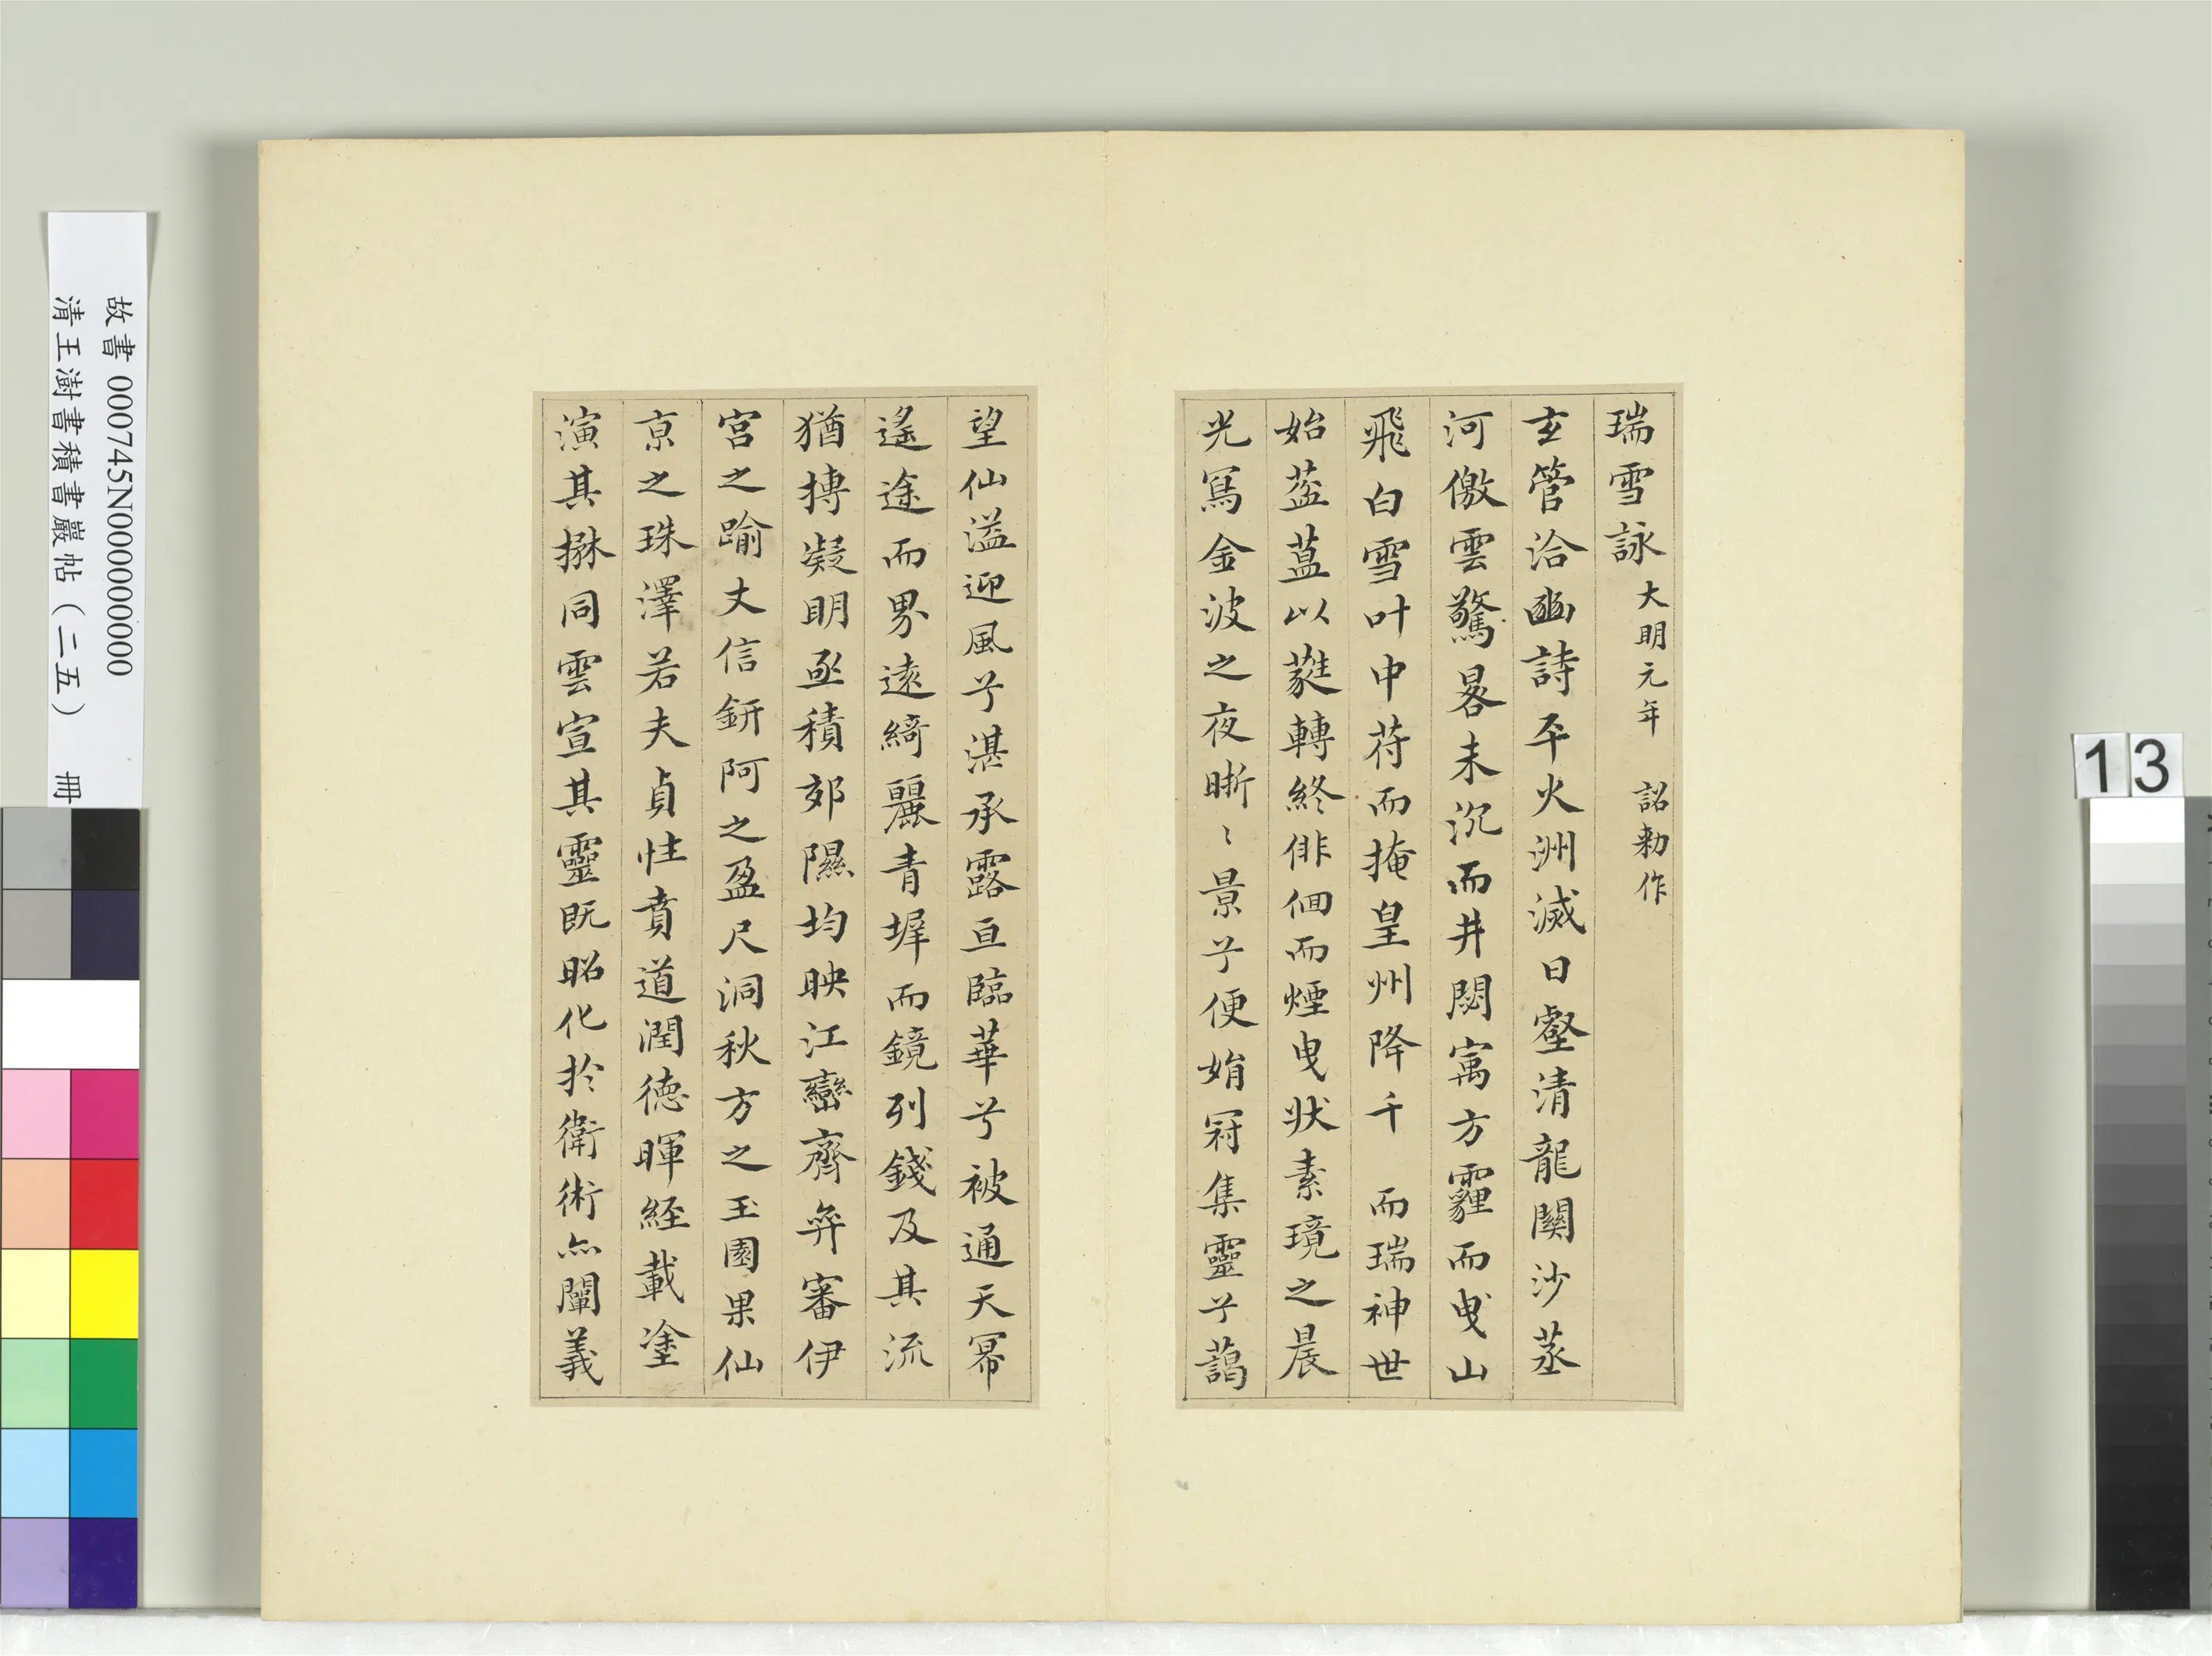 瑞雪詠 大明元年 詔勅作
玄管洽幽詩平火洲滅日壑清龍關沙蒸
河儌雲驚晷未沉而井閟寓方霾而曳山
飛白雪叶中苻而掩皇州降千 而瑞神世
始葢蒀以蕤轉終徘徊而煙曳狀素境之晨
光寫金波之夜晰〻景兮便娟冠集靈兮藹
望仙溢迎風兮湛承露亘臨華兮被通天冪
遙途而界遠綺麗青墀而鏡列錢及其流
猶摶凝明亟積郊隰均映江巒齊弈審伊
宮之踰丈信鈃阿之盈尺洞秋方之玉園果仙
京之珠澤若夫貞性賁道潤德暉経載塗
演其掰同雲宣其靈既昭化於衛術亦闡義
故書 000745N000000000
清王澍書積書巖帖（二五） 冊
13